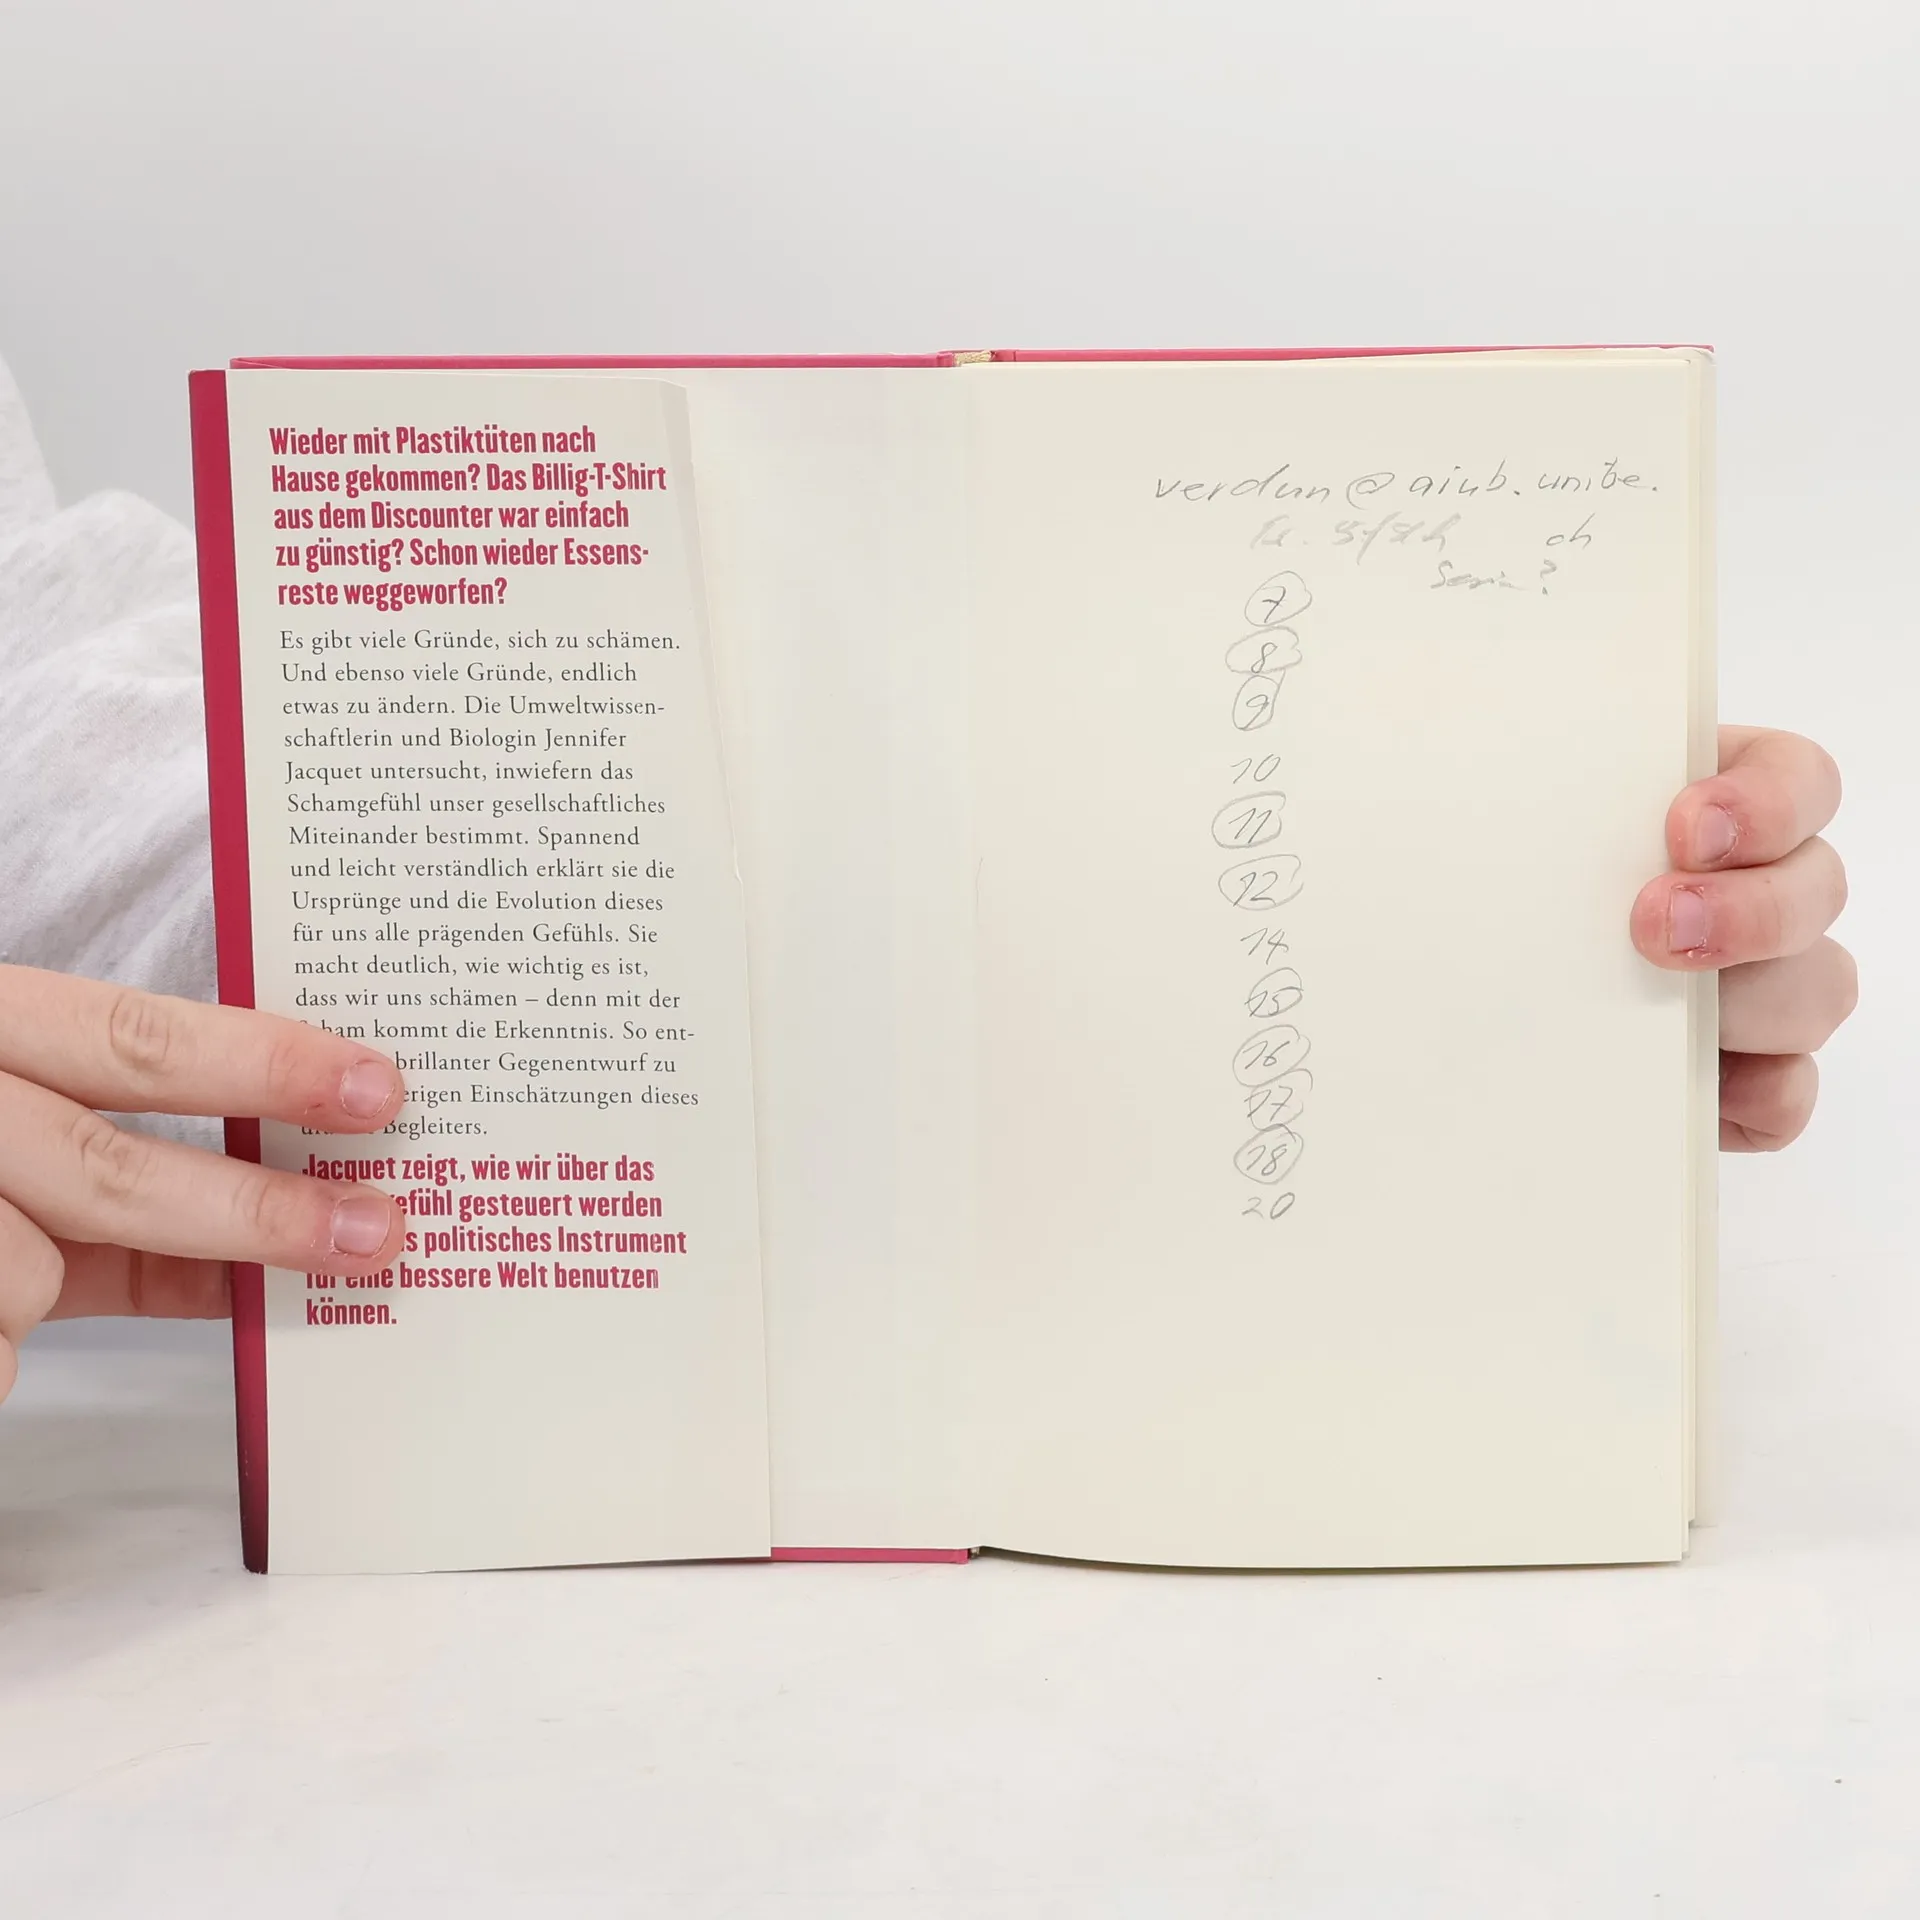 Wieder mit Plastiktüten nach
Hause gekommen? Das Billig-T-Shirt
aus dem Discounter war einfach
zu günstig? Schon wieder Essens-
reste weggeworfen?
Es gibt viele Gründe, sich zu schämen.
Und ebenso viele Gründe, endlich
etwas zu ändern. Die Umweltwissen-
schaftlerin und Biologin Jennifer
Jacquet untersucht, inwiefern das
Schamgefühl unser gesellschaftliches
Miteinander bestimmt. Spannend
und leicht verständlich erklärt sie die
Ursprünge und die Evolution dieses
für uns alle prägenden Gefühls. Sie
macht deutlich, wie wichtig es ist,
dass wir uns schämen – denn mit der
kommt die Erkenntnis. So ent-
brillanter Gegenentwurf zu
Einschätzungen dieses
Begleiters.
Jacquet zeigt, wie wir über das
gesteuert werden
politisches Instrument
für eine bessere Welt benutzen
können.
verdun@aiub.unibe.
ch
7
8
9
10
11
12
14
15
16
17
18
20